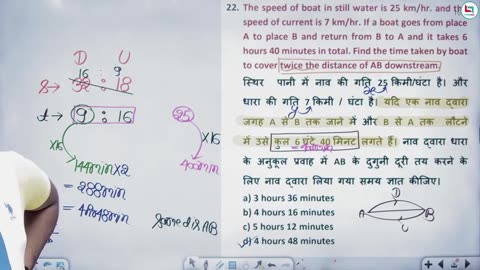 D U
16 : 9
S → 32 : 18
t → 9 : 16
25
×16
×16
144min×2
400min
= 288min
= 4h 48min
Same dis AB
22. The speed of boat in still water is 25 km/hr. and the
speed of current is 7 km/hr. If a boat goes from place
A to place B and return from B to A and it takes 6
hours 40 minutes in total. Find the time taken by boat
to cover twice the distance of AB downstream.
स्थिर पानी में नाव की गति 25 किमी/घंटा है। और
धारा की गति 7 किमी / घंटा है। यदि एक नाव द्वारा
जगह A से B तक जाने में और B से A तक लौटने
में उसे कुल 6 घंटे 40 मिनट लगते हैं। नाव द्वारा धारा
के अनुकूल प्रवाह में AB के दुगुनी दूरी तय करने के
लिए नाव द्वारा लिया गया समय ज्ञात कीजिए।
a) 3 hours 36 minutes
b) 4 hours 16 minutes
c) 5 hours 12 minutes
d) 4 hours 48 minutes
D
A B
U